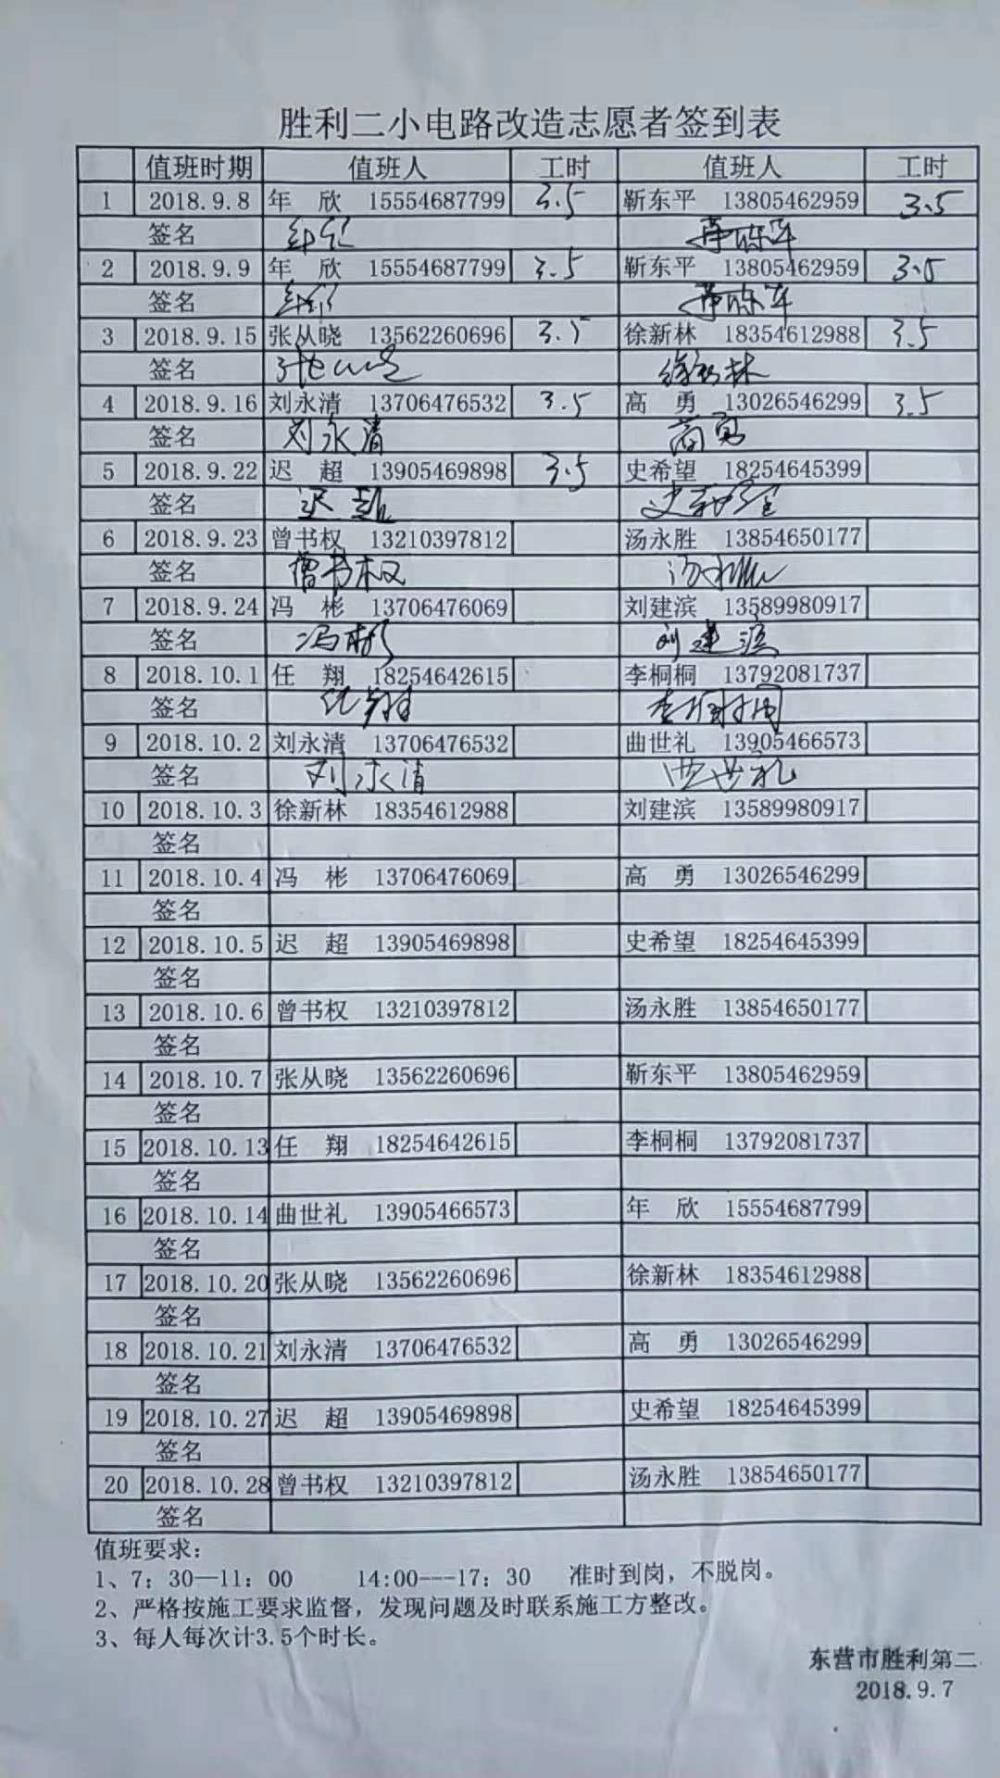 胜利二小电路改造志愿者签到表
值班时期 值班人 工时 值班人 工时
1 2018.9.8 年 欣 15554687799 3.5 靳东平 13805462959 3.5
签名
2 2018.9.9 年 欣 15554687799 3.5 靳东平 13805462959 3.5
签名
3 2018.9.15 张从晓 13562260696 3.5 徐新林 18354612988 3.5
签名 徐新林
4 2018.9.16 刘永清 13706476532 3.5 高 勇 13026546299 3.5
签名 刘永清 高勇
5 2018.9.22 迟 超 13905469898 3.5 史希望 18254645399
签名 迟超 史希望
6 2018.9.23 曾书权 13210397812 汤永胜 13854650177
签名 曾书权 汤永胜
7 2018.9.24 冯 彬 13706476069 刘建滨 13589980917
签名 冯彬 刘建滨
8 2018.10.1 任 翔 18254642615 李桐桐 13792081737
签名 任翔 李桐桐
9 2018.10.2 刘永清 13706476532 曲世礼 13905466573
签名 刘永清 曲世礼
10 2018.10.3 徐新林 18354612988 刘建滨 13589980917
签名
11 2018.10.4 冯 彬 13706476069 高 勇 13026546299
签名
12 2018.10.5 迟 超 13905469898 史希望 18254645399
签名
13 2018.10.6 曾书权 13210397812 汤永胜 13854650177
签名
14 2018.10.7 张从晓 13562260696 靳东平 13805462959
签名
15 2018.10.13 任 翔 18254642615 李桐桐 13792081737
签名
16 2018.10.14 曲世礼 13905466573 年 欣 15554687799
签名
17 2018.10.20 张从晓 13562260696 徐新林 18354612988
签名
18 2018.10.21 刘永清 13706476532 高 勇 13026546299
签名
19 2018.10.27 迟 超 13905469898 史希望 18254645399
签名
20 2018.10.28 曾书权 13210397812 汤永胜 13854650177
签名
值班要求：
1、7：30—11：00 14:00---17：30 准时到岗，不脱岗。
2、严格按施工要求监督，发现问题及时联系施工方整改。
3、每人每次计3.5个时长。
东营市胜利第二
2018.9.7